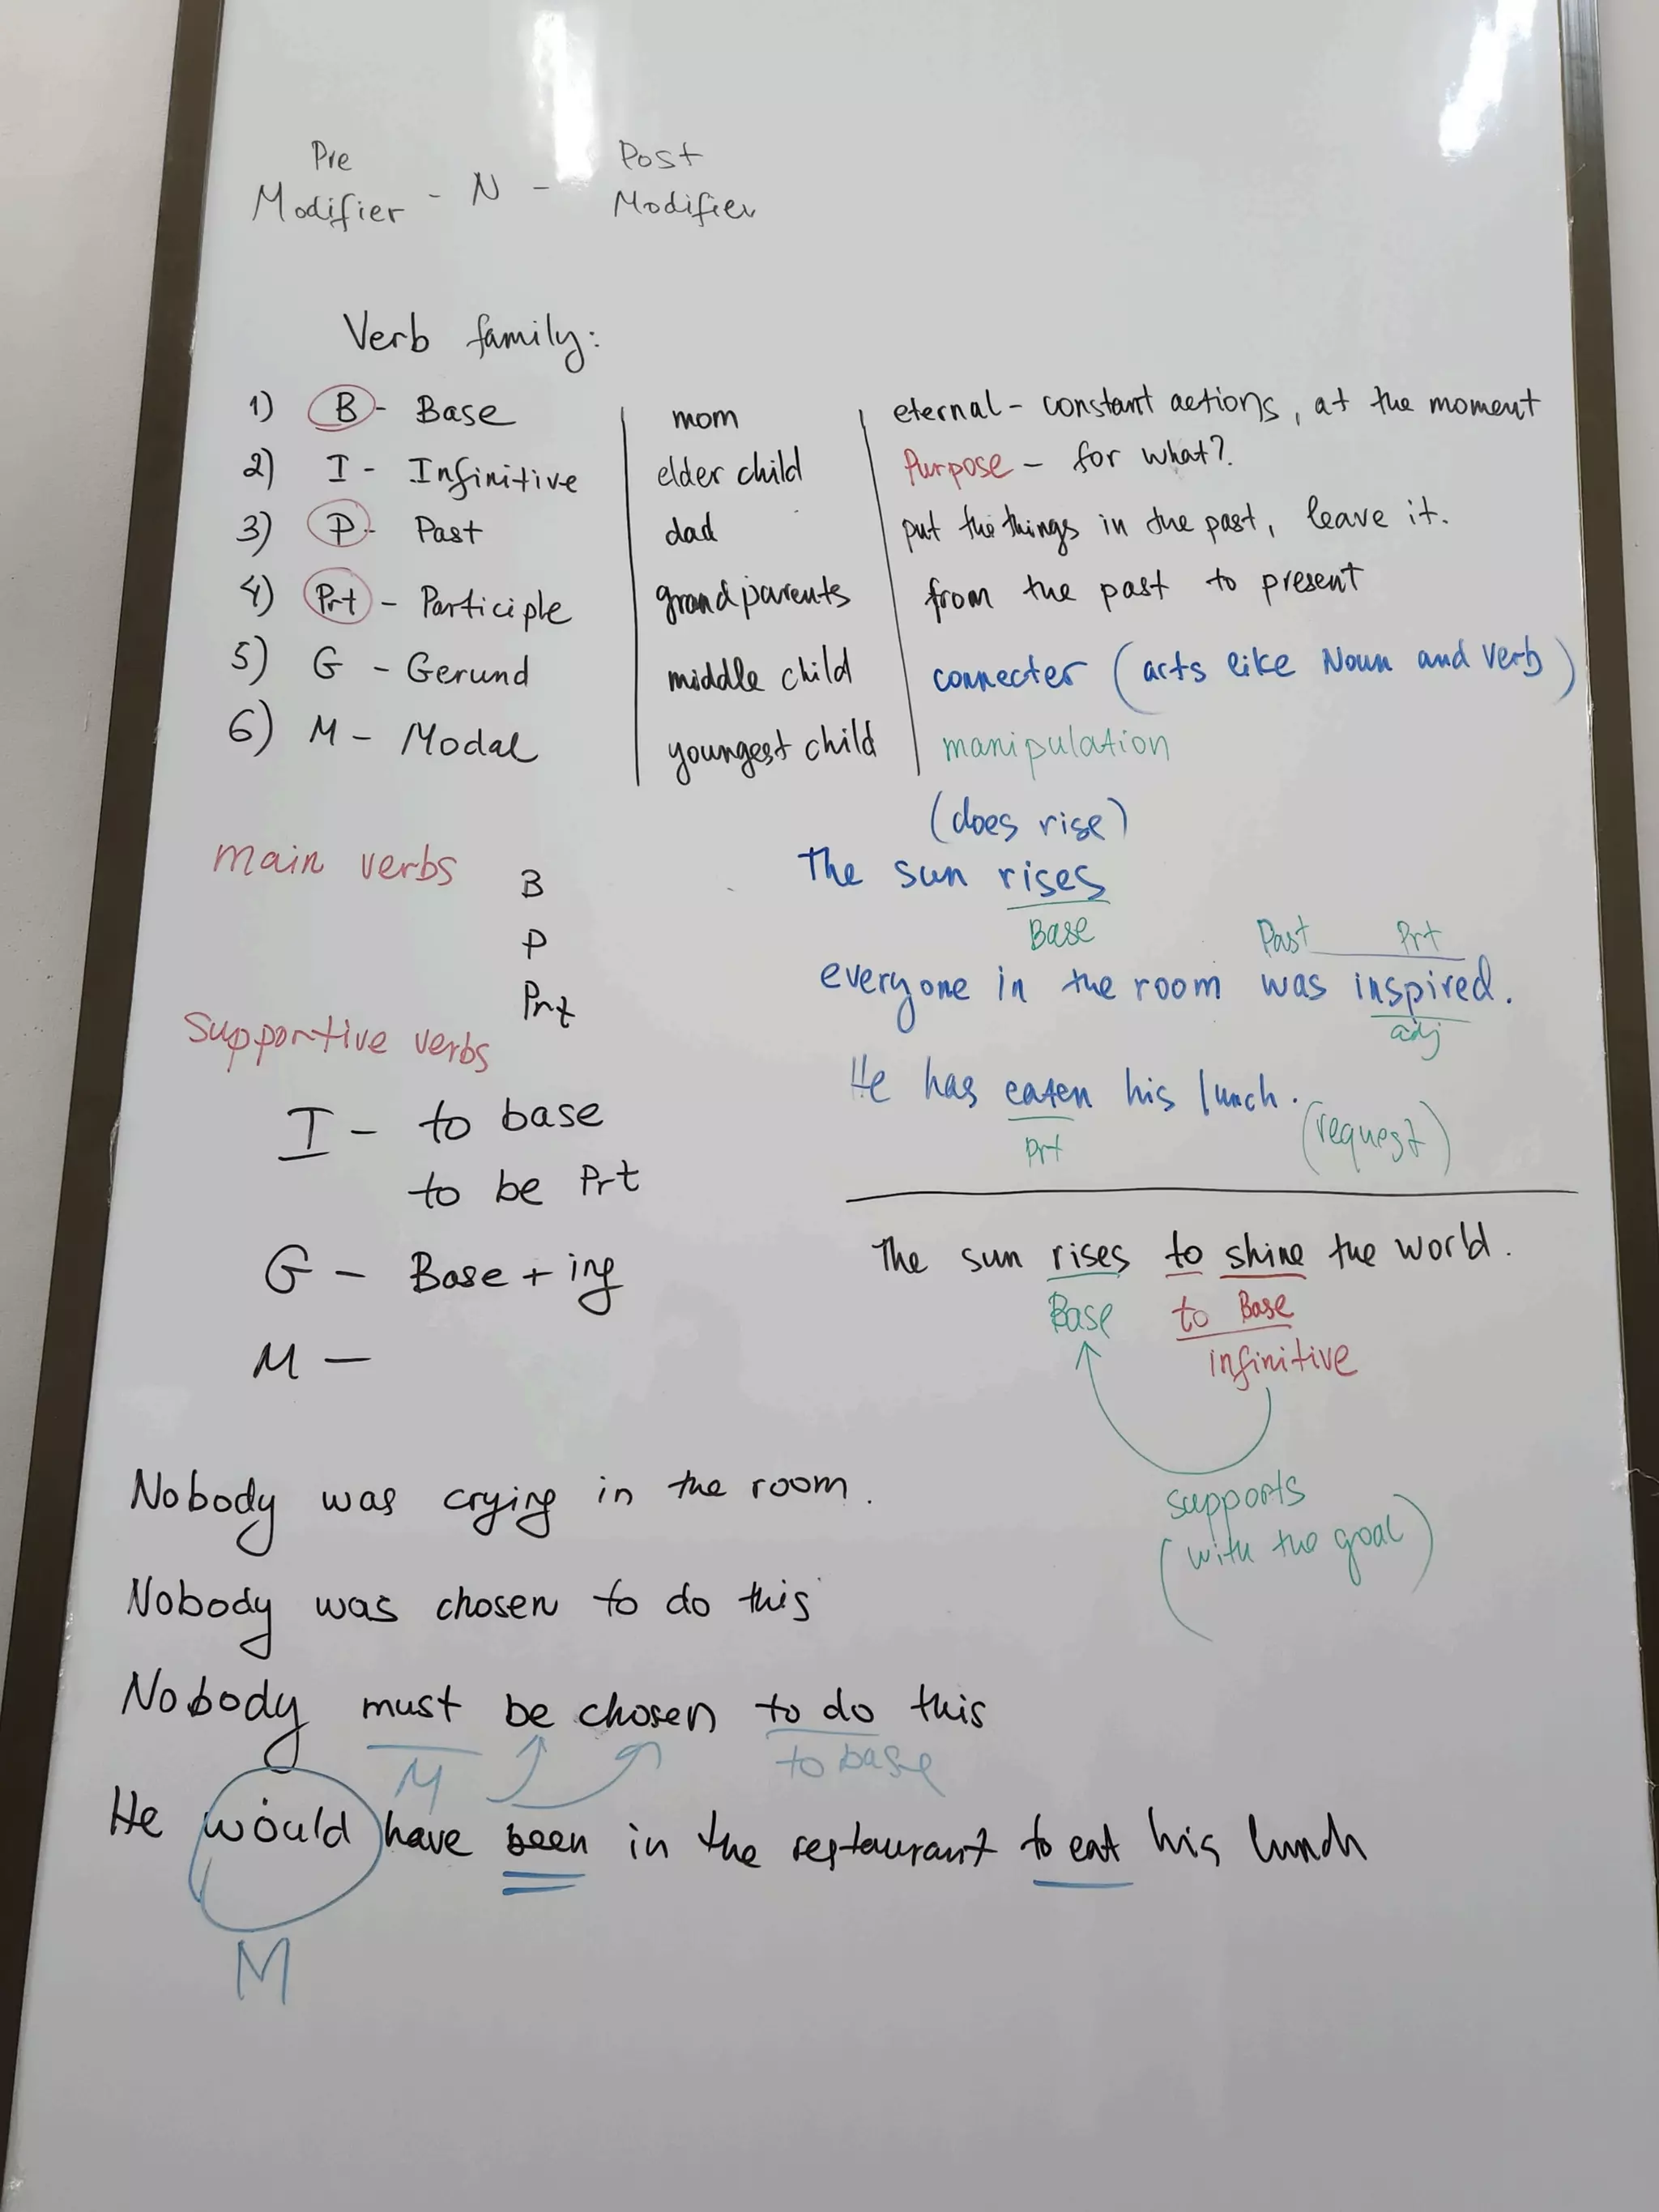 Pre
Modifier - N - Post
Modifier
Verb family:
1) B - Base mom eternal - constant actions, at the moment
2) I - Infinitive elder child Purpose - for what?
3) P - Past dad put the things in the past, leave it.
4) Prt - Participle grandparents from the past to present
5) G - Gerund middle child connecter (acts like Noun and verb)
6) M - Modal youngest child manipulation
main verbs
B
P
Prt
Supportive verbs
I - to base
to be Prt
G - Base + ing
M -
(does rise)
The sun rises
Base
Past Prt
everyone in the room was inspired.
adj
He has eaten his lunch.
Prt
(request)
The sun rises to shine the world.
Base to Base
infinitive
supports
(with the goal)
Nobody was crying in the room.
Nobody was chosen to do this
Nobody must be chosen to do this
M to base
He would have been in the restaurant to eat his lunch
M